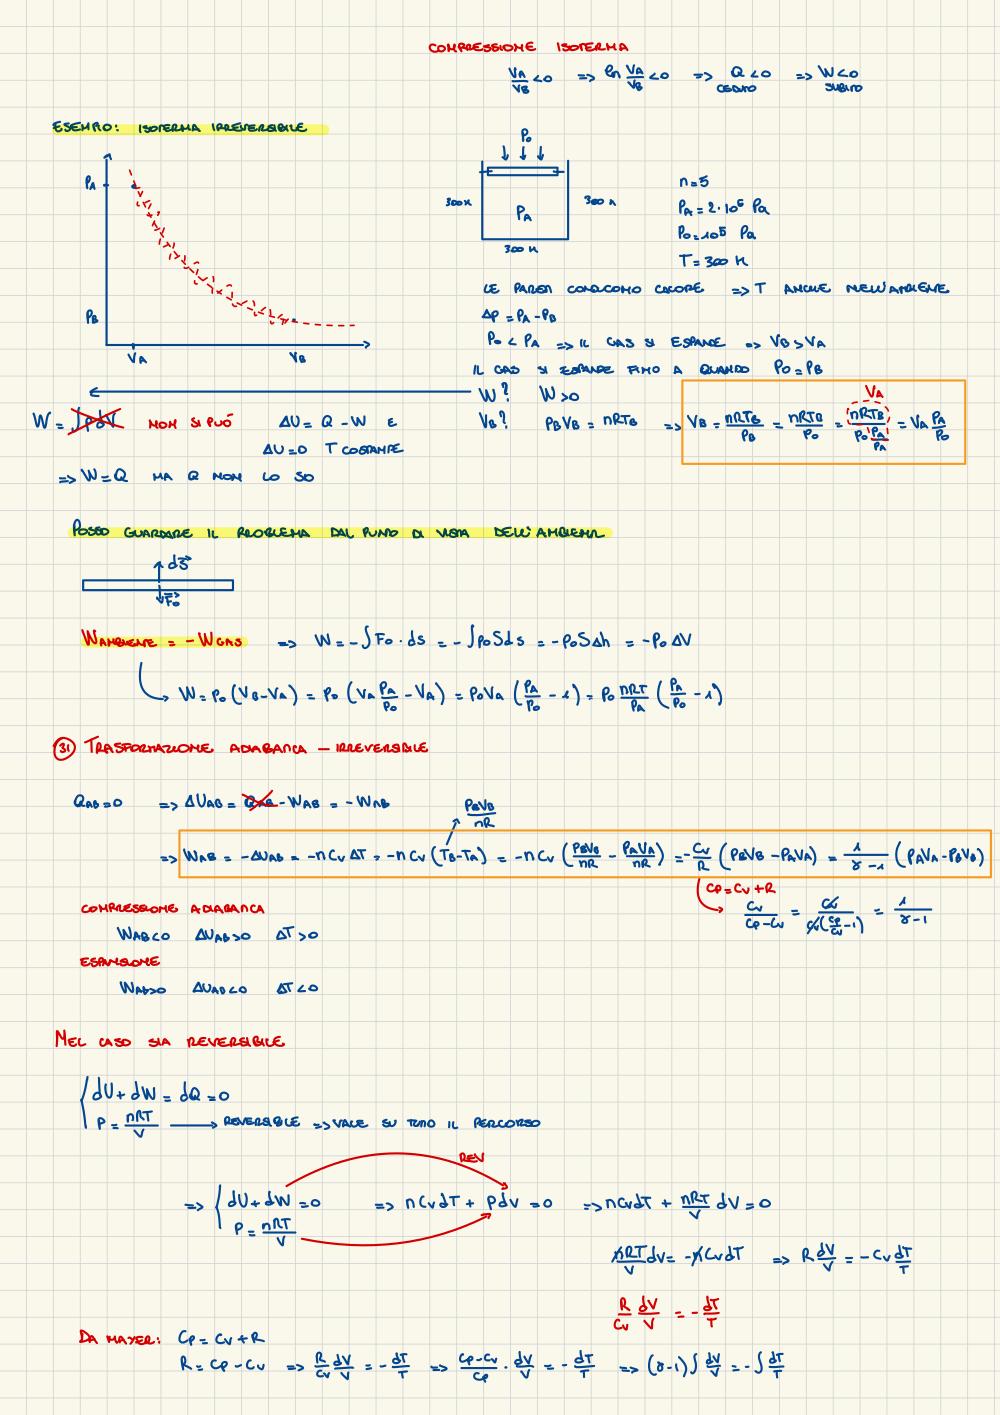 COMPRESSIONE ISOTERMA
VA/VB <0 => ln VA/VB <0 => Q <0 => W<0
CEDUTO SUBITO
ESEMPIO: ISOTERMA IRREVERSIBILE
P0
PA
300K
PA
300 K
300 K
PB
VA VB
n=5
PA = 2·10⁶ Pa
P0 = 10⁵ Pa
T= 300 K
LE PARETI CONDUCONO CALORE => T ANCHE NELL'AMBIENTE
Δp = PA - PB
P0 < PA => IL GAS SI ESPANDE => VB > VA
IL GAS SI ESPANDE FINO A QUANDO P0 = PB
W? W>0
VB? PBVB = nRTB => VB = nRTB/PB = nRTB/P0 = nRTB/(P0 PA/PA) = VA PA/P0
VA
W = ∫pdV NON SI PUÒ ΔU = Q - W E
ΔU=0 T COSTANTE
=> W=Q MA Q NON LO SO
POSSO GUARDARE IL PROBLEMA DAL PUNTO DI VISTA DELL'AMBIENTE
dS
F0
WAMBIENTE = - WGAS => W = -∫F0 · ds = -∫p0Sds = -p0SΔh = -p0 ΔV
W = P0 (VB-VA) = P0 (VA PA/P0 - VA) = P0VA (PA/P0 - 1) = P0 nRT/PA (PA/P0 - 1)
31 TRASFORMAZIONE ADIABATICA — IRREVERSIBILE
QAB=0 => ΔUAB = QAB - WAB = - WAB
PBVB/nR
=> WAB = -ΔUAB = -nCv ΔT = -nCv (TB-TA) = -nCv (PBVB/nR - PAVA/nR) = -Cv/R (PBVB - PAVA) = 1/(γ-1) (PAVA - PBVB)
CP=CV+R
Cv/(CP-Cv) = Cv/(Cv(CP/Cv -1)) = 1/(γ-1)
COMPRESSIONE ADIABATICA
WAB<0 ΔUAB>0 ΔT>0
ESPANSIONE
WAB>0 ΔUAB<0 ΔT<0
NEL CASO SIA REVERSIBILE
dU + dW = dQ = 0
P = nRT/V → REVERSIBILE => VALE SU TUTTO IL PERCORSO
REV
=> { dU + dW = 0 => nCvdT + pdv = 0 => nCvdT + nRT/V dV = 0
P = nRT/V
nRT/V dV = -nCvdT => R dV/V = -Cv dT/T
R/Cv dV/V = - dT/T
DA MAYER: CP = CV + R
R = CP - CV => R/Cv dV/V = - dT/T => (CP-Cv)/CP · dV/V = - dT/T => (γ-1)∫ dV/V = -∫ dT/T